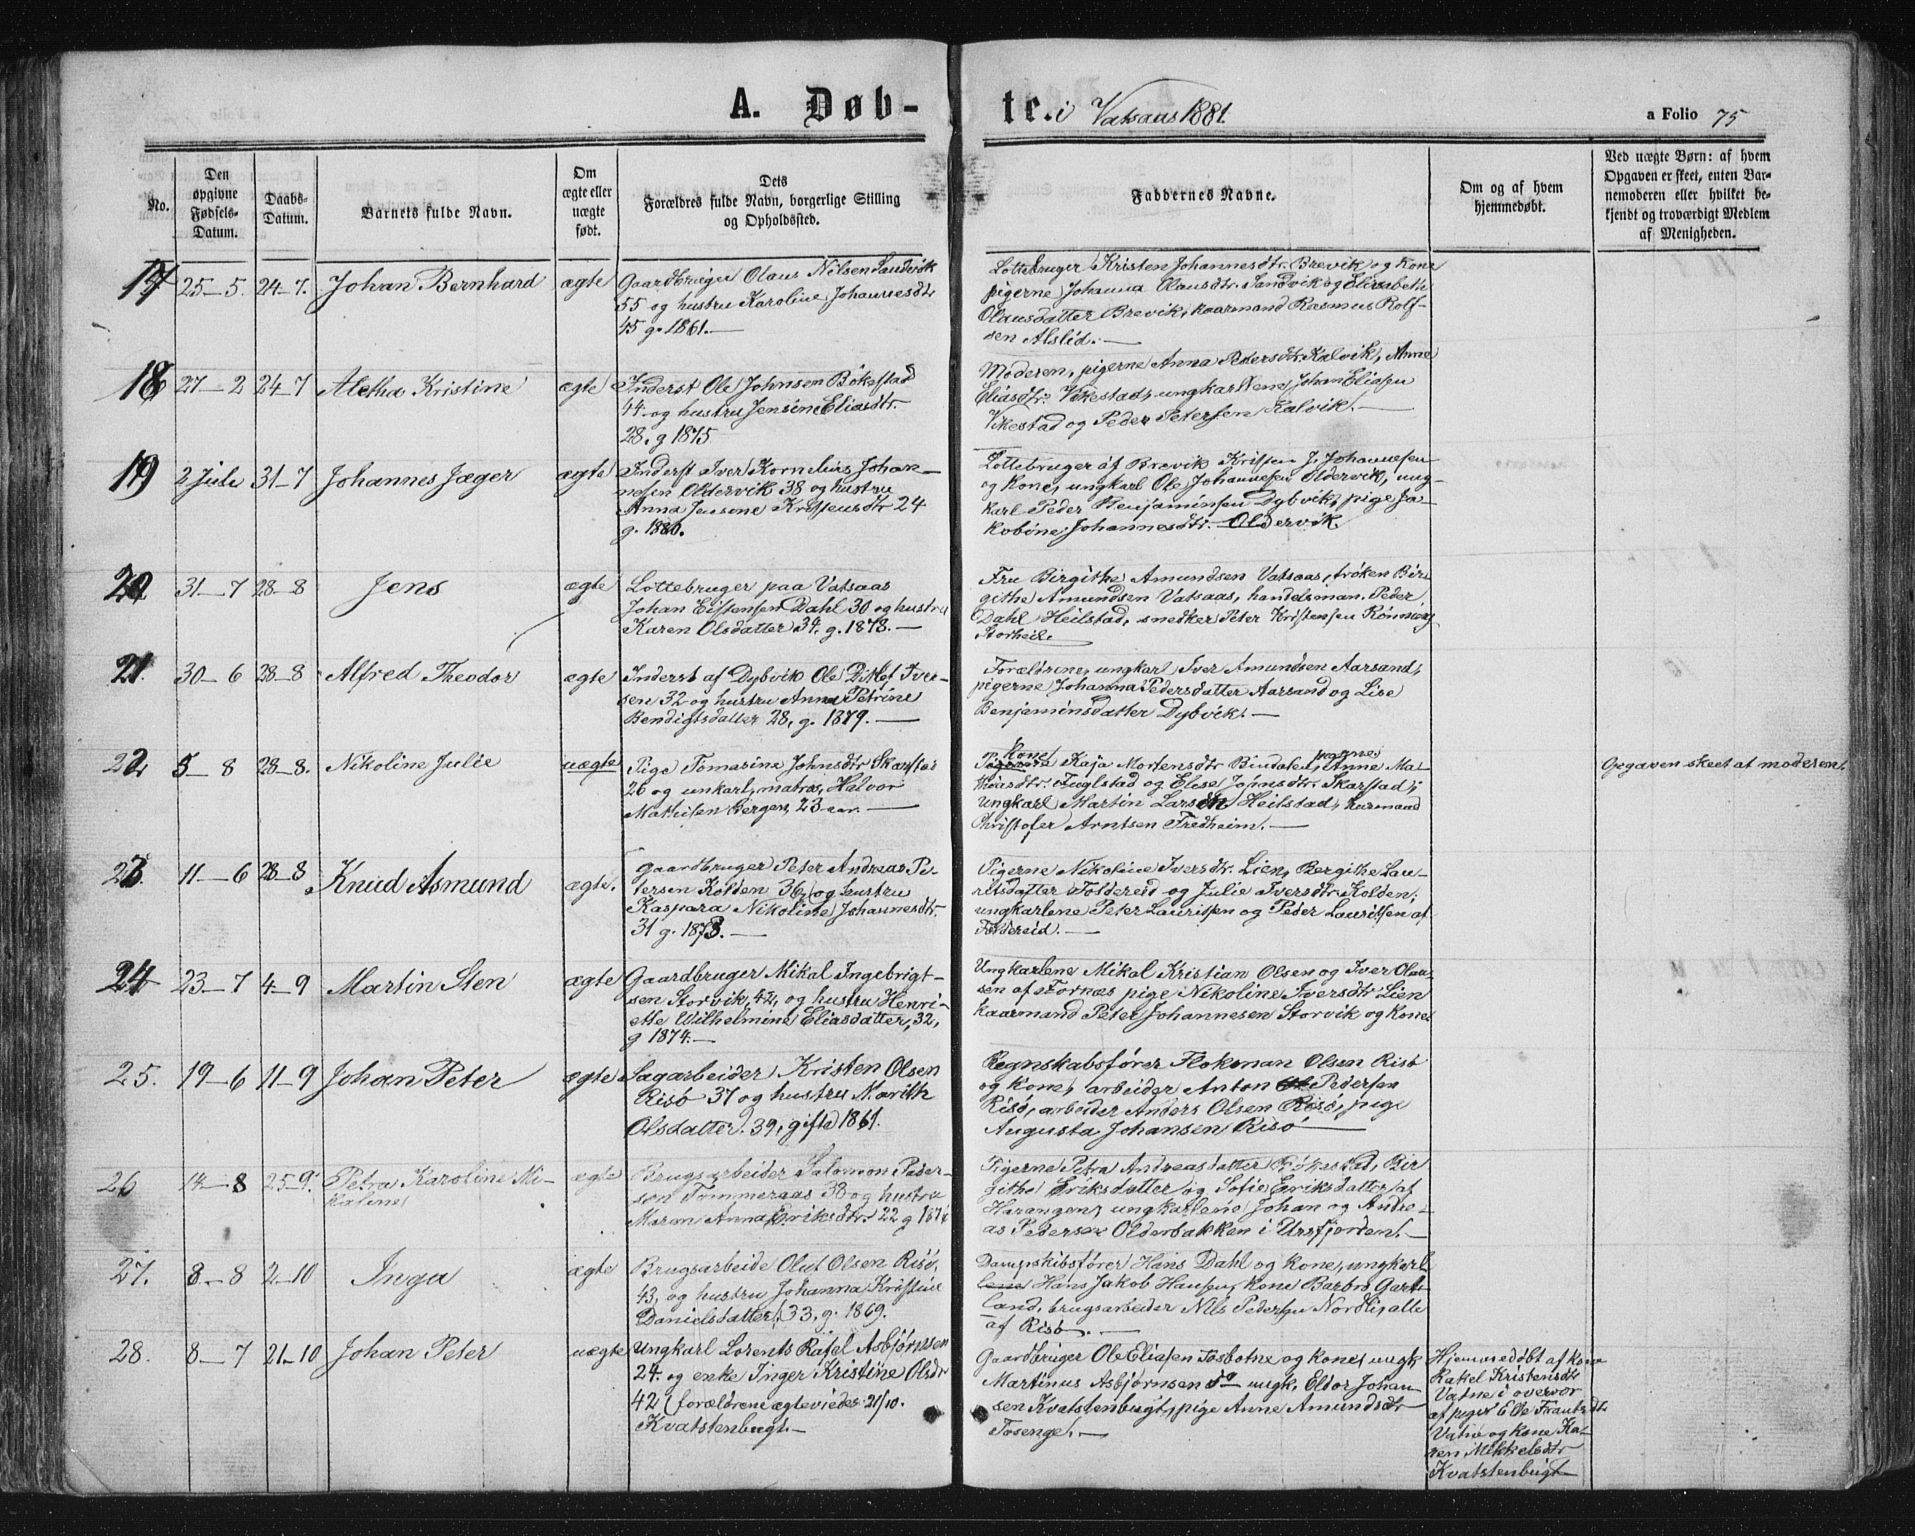 A. Døb-
te. i Vatsaas 1881.
a Folio 75
No.
Den
opgivne
Fødsels-
Datum.
Daabs-
Datum.
Barnets fulde Navn.
Om
ægte eller
uægte
født.
Dets
Forældres fulde Navn, borgerlige Stilling
og Opholdssted.
Faddernes Navne.
Om og af hvem
hjemmedøbt.
Ved uægte Børn: af hvem
Opgaven er skeet, enten Bar-
nemoderen eller hvilket be-
kjendt og troværdigt Medlem
af Menigheden.
17 25-5. 24-7. Johan Bernhard ægte
Gaardbruger Olaus Nilsen Sandvik
55 og hustru Karoline Johannesdtr
45 g. 1861.—
Lottebruger Kristen Johannesdtr. Brevik og kone
pigerne Johanna Olausdtr. Sandvik og Elisabeth
Olausdatter Brevik, kaarmand Rasmus Rolf-
sen Alslid.—
18 27-2 24-7 Aletha Kristine ægte
Inderst Ole Johnsen Bökestad
44 og hustru Jensine Eliasdtr.
28. g 1875
Moderen, pigerne Anna Pedersdtr. Kalvik, Anne
Eliasdtr. Vikestad, ungkarlene Johan Eliasen
Vikestad og Peder Petersen Kalvik.—
19 2 Juli 31-7 Johannes Jæger ægte
Inderst Iver Kornelius Johan-
nesen Oldervik 38 og hustru
Anna Jensine Kristensdtr 24
g. 1880.
Lottebruger af Brevik Kristen J. Johannesen
og Kone, ungkarl Ole Johannesen Oldervik, ung-
karl Peder Benjaminsen Dybvik, pige Ja-
kobine Johannesdtr. Oldervik.
20 31-7 28-8 Jens ægte
Lottebruger paa Vatsaas
Johan Eistensen Dahl 30 og hustru
Karen Olsdatter 34, g. 1878.—
Fru Birgithe Amundsen Vatsaas, frøken Bir-
githe Amundsen Vatsaas, handelsman. Peder
Dahl Heilstad, snedker Peter Kristensen Rönning
Storheil.
21. 30-6 28-8 Alfred Theodor ægte
Inderst af Dybvik Ole Ditlef Iver-
sen 32 og hustru Anna Petrine
Bendigtsdatter 28, g. 1879.—
Forældrene, ungkarl Iver Amundsen Aarsand,
pigerne Johanna Pedersdatter Aarsand og Lise
Benjaminsdatter Dybvik.—
22 5-8 28-8. Nikoline Julie uægte
Pige Tomasine Johnsdtr Skarstad
26 og unkarl, matros, Halvor
Mathisen Bergen, 23 aar.—
Kone Kaja Mortensdtr Bindalen, Anne Ma-
thiasdtr. Fuglstad og Elise Johnsdtr. Skarstad,
ungkarl Martin Larsen Heilstad, kurmand
Christofer Arntsen Fredheim.—
Opgaven skeet af moderen.
23. 11-6 28-8 Knud Asmund ægte.
Gaardbruger Peter Andreas Pe-
tersen Kolden 36, og hustru
Kaspara Nikoline Johannesdtr.
31 g. 1873.—
Pigerne Nikoline Iversdtr. Lien, Bergithe Lau-
ritsdatter Foldereid og Julie Iversdtr. Kolden,
ungkarlene Peter Lauritsen og Peder Lauritsen af
Foldereid.—
24 23-7 4-9 Martin Sten ægte
Gaardbruger Mikal Ingebrigt-
sen Storvik, 42, og hustru Henri-
ette Wilhelmine Eliasdatter, 32,
g 1874.—
Ungkarlene Mikal Kristian Olsen og Iver Olau-
sen af Fornæs, pige Nikoline Iversdtr Lien
kaarmand Peter Johannesen Storvik og kone
25. 19-6 11-9 Johan Peter ægte
Sagarbeider Kristen Olsen
Risö 37 og hustru Marith
Olsdatter. 39, gifte 1861.
Regnskabsfører Flokeman Olsen Risö
og kone, arbeider Anton Pedersen
Risö, arbeider Anders Olsen Risö, pige
Augusta Johansen Risö—
26 14-8 25-9. Petra Karoline Mi-
kaline ægte
Brugsarbeider Salomon Peder-
sen Tømmeraas 38 og hustru
Maren Anna Eriksdtr. 22 g 1876
Pigerne Petra Andreasdatter Bökestad, Bir-
githe Eriksdatter og Sofie Eriksdatter af
Harangen, ungkarlene Johan og Andre-
as Pedersen Olderbakken i Ursfjorden.—
27. 8-8 2-10 Inga ægte
Brugsarbeide Oluf Olsen Risö,
43, og hustru Johanna Kristine
Danielsdatter, 33, g. 1869.
Dampskibsfører Hans Dahl og kone, ungkarl
Hans Jakob Hansen, kone Barbro Gart-
land, brugsarbeider Nils Pedersen Nordli, alle
af Risö.—
28. 8-7 21-10 Johan Peter uægte
Ungkarl Lorents Rafel Asbjørnsen
24 og enke Inger Kristine Olsdtr
42 (forældrene ægteviedes 21/10.
Kvatstenbugt.—
Gaardbruger Ole Eliasen Tosbotne og kone, ungk
Martinus Asbjørnsen do ungk. Eldor Johan
sen Kvatstenbugt, pige Anne Amundsdtr
Tosenget.—
Hjemmedøbt af kone
Rakel Kristensdtr
Vatne i overvær
af piger Elle Frantsdtr
Vatne og kone Ka-
ren Mikkelsdtr
Kvatstenbugt